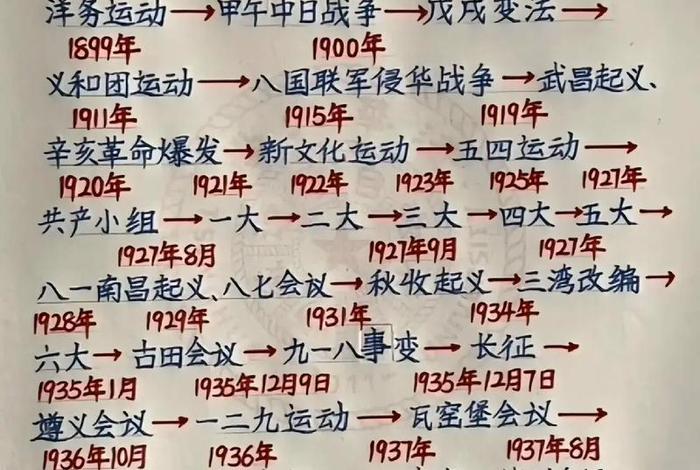 洋务运动→甲午中日战争→戊戌变法→
1899年 1900年
义和团运动→八国联军侵华战争→武昌起义、
1911年 1915年 1919年
辛亥革命爆发→新文化运动→五四运动→
1920年 1921年 1922年 1923年 1925年 1927年
共产小组→一大→二大→三大→四大→五大→
1927年8月 1927年9月 1927年
八一南昌起义、八七会议→秋收起义→三湾改编→
1928年 1929年 1931年 1934年
六大→古田会议→九一八事变→长征→
1935年1月 1935年12月9日 1935年12月7日
遵义会议→一二九运动→瓦窑堡会议→
1936年10月 1936年 1937年 1937年8月